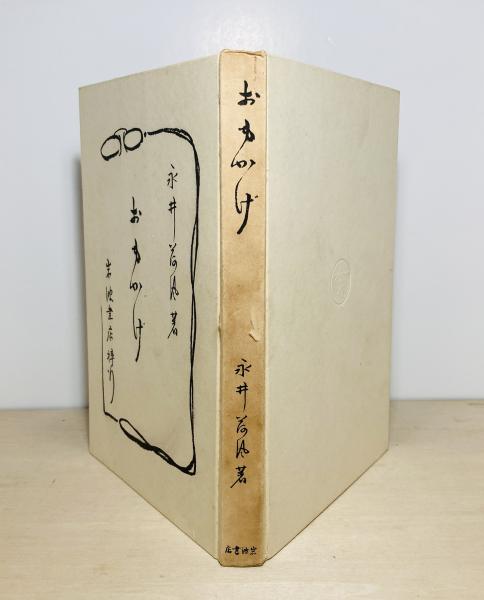 永井荷風著
おもかげ
岩波書店梓行
おもかげ
永井荷風著
岩波書店